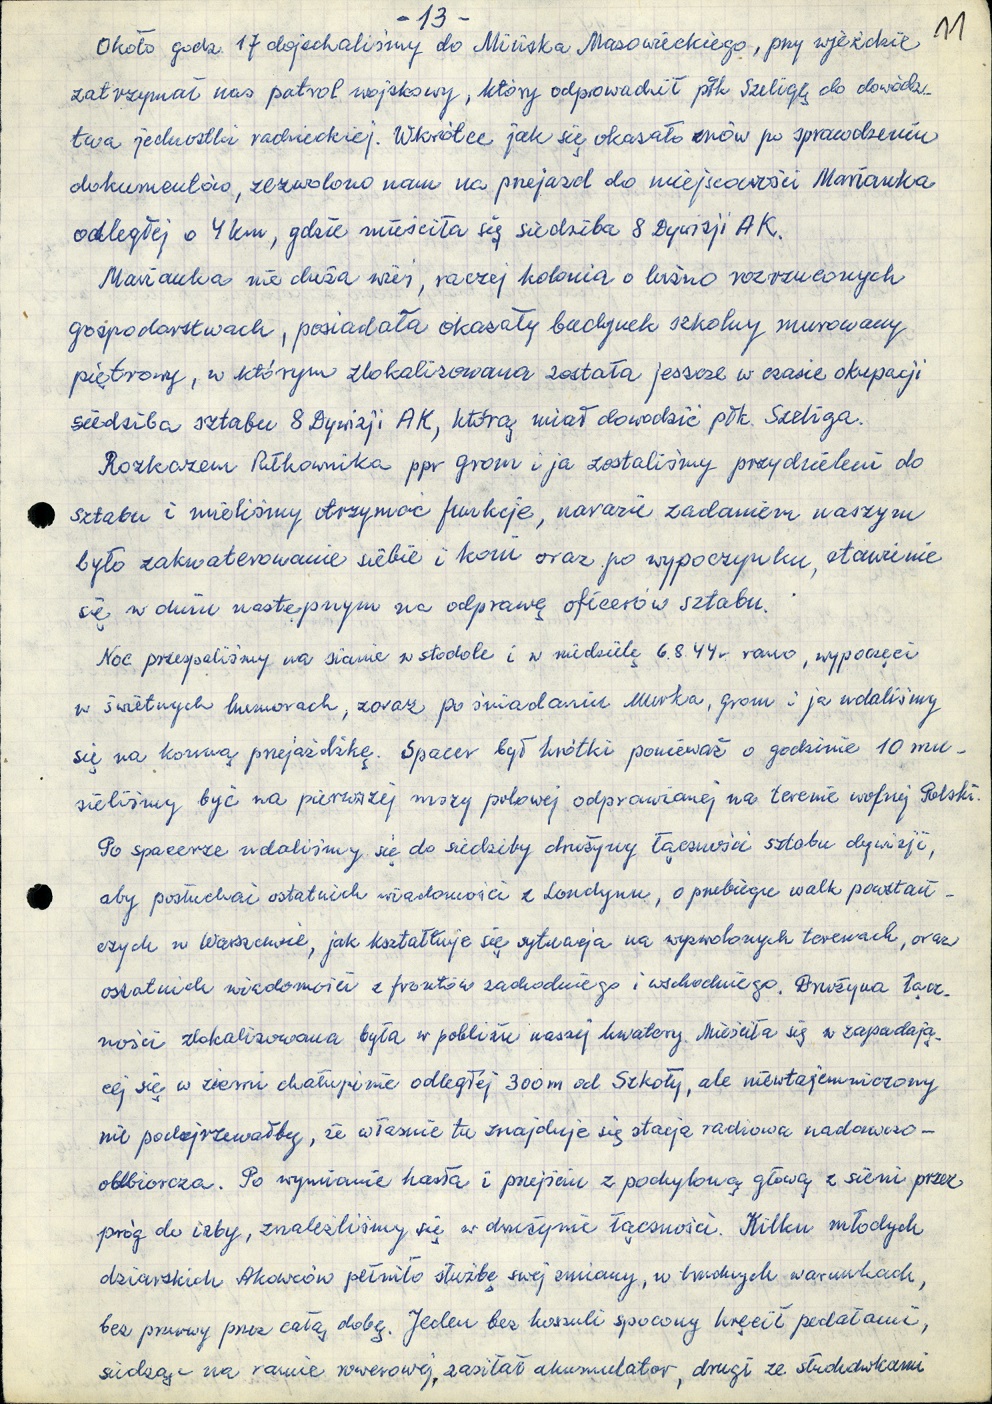 - 13 -
11
Około godz. 17 dojechaliśmy do Mińska Mazowieckiego, przy wjeździe
zatrzymał nas patrol wojskowy, który odprowadził płk Szeligę do dowódz-
twa jednostki radzieckiej. Wkrótce jak się okazało znów po sprawdzeniu
dokumentów, zezwolono nam na przejazd do miejscowości Marianka
odległej o 4 km, gdzie mieściła się siedziba 8 Dywizji AK.
Marianka nie duża wieś, raczej kolonia o luźno rozrzuconych
gospodarstwach, posiadała okazały budynek szkolny murowany
piętrowy, w którym zlokalizowana została jeszcze w czasie okupacji
siedziba sztabu 8 Dywizji AK, którą miał dowodzić płk. Szeliga.
Rozkazem Pułkownika ppr Grom i ja zostaliśmy przydzieleni do
sztabu i mieliśmy otrzymać funkcje, narazie zadaniem naszym
było zakwaterowanie siebie i koni oraz po wypoczynku, stawienie
się w dniu następnym na odprawę oficerów sztabu.
Noc przespaliśmy na sianie w stodole i w niedzielę 6.8.44r rano, wypoczęci
w świetnych humorach, zaraz po śniadaniu Murka, Grom i ja udaliśmy
się na konną przejażdżkę. Spacer był krótki ponieważ o godzinie 10 mu-
sieliśmy być na pierwszej mszy polowej odprawianej na terenie wolnej Polski.
Po spacerze udaliśmy się do siedziby drużyny łączności sztabu dywizji,
aby posłuchać ostatnich wiadomości z Londynu, o przebiegu walk powstań-
czych w Warszawie, jak kształtuje się sytuacja na wyzwolonych terenach, oraz
ostatnich wiadomości z frontów zachodniego i wschodniego. Drużyna łącz-
ności zlokalizowana była w pobliżu naszej kwatery. Mieściła się w zapadają-
cej się w ziemi chałupinie odległej 300m od Szkoły, ale niewtajemniczony
nie podejrzewałby, że właśnie tu znajduje się stacja radiowa nadawczo-
odbiorcza. Po wymianie hasła i przejściu z pochyloną głową z sieni przez
próg do izby, znaleźliśmy się w drużynie łączności. Kilku młodych
dziarskich Akowców pełniło służbę swej zmiany, w trudnych warunkach,
bez przerwy przez całą dobę. Jeden bez koszuli spocony kręcił pedałami,
siedząc na ramie rowerowej, zasilał akumulator, drugi ze słuchawkami